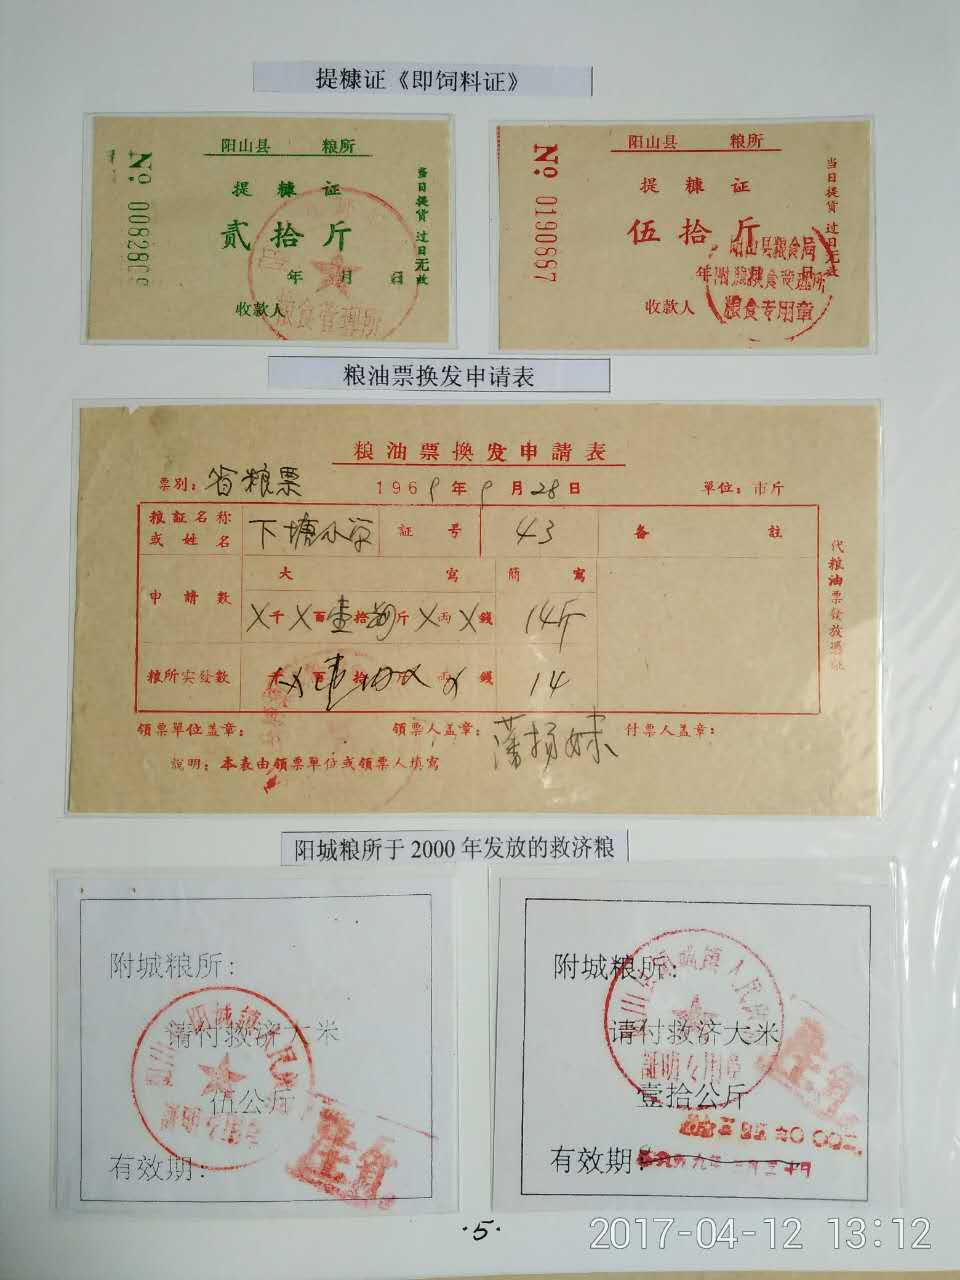 提糠证《即饲料证》
阳山县 粮所
提糠证
贰拾斤
年 月 日
收款人
当日提货 过日无效
No 008280
粮食管理所
阳山县 粮所
提糠证
伍拾斤
年 月 日
收款人
当日提货 过日无效
No 0190687
阳山县粮食局
粮食专用章
粮油票换发申请表
粮油票換发申請表
票別：省粮票 1969年9月28日 單位：市斤
粮証名称或姓名 下塘小学 証号 43 备註
申請數 大寫 簡寫
X千X百壹拾肆斤X两X錢 14斤
粮所实發數 千 拾 两 錢 14
代粮油票發放憑証
領票單位盖章： 領票人盖章： 付票人盖章：
說明：本表由領票單位或領票人填寫
阳城粮所于2000年发放的救济粮
附城粮所：
请付救济大米
伍公斤
有效期：
附城粮所：
请付救济大米
壹拾公斤
有效期：
·5·
2017-04-12 13:12